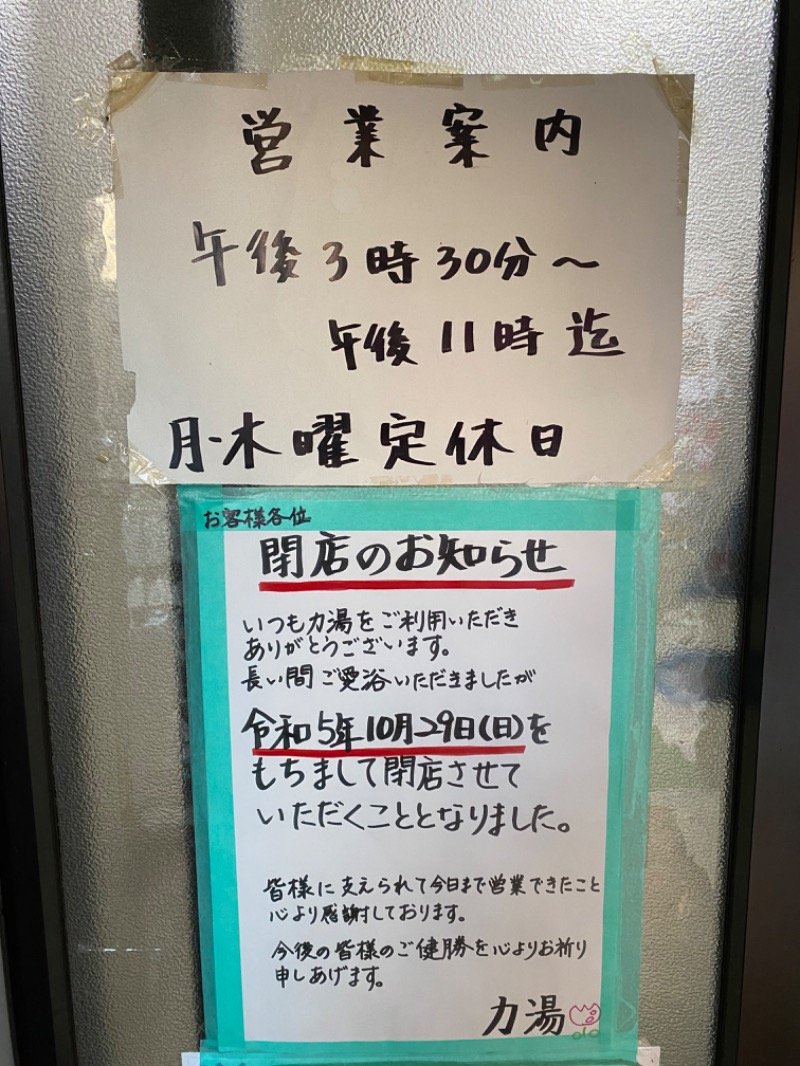 営業案内
午後3時30分〜
午後11時迄
月・木曜定休日
お客様各位
閉店のお知らせ
いつも力湯をご利用いただき
ありがとうございます。
長い間ご愛浴いただきましたが
令和5年10月29日(日)を
もちまして閉店させて
いただくこととなりました。
皆様に支えられて今日まで営業できたこと
心より感謝しております。
今後の皆様のご健勝を心よりお祈り
申しあげます。
力湯